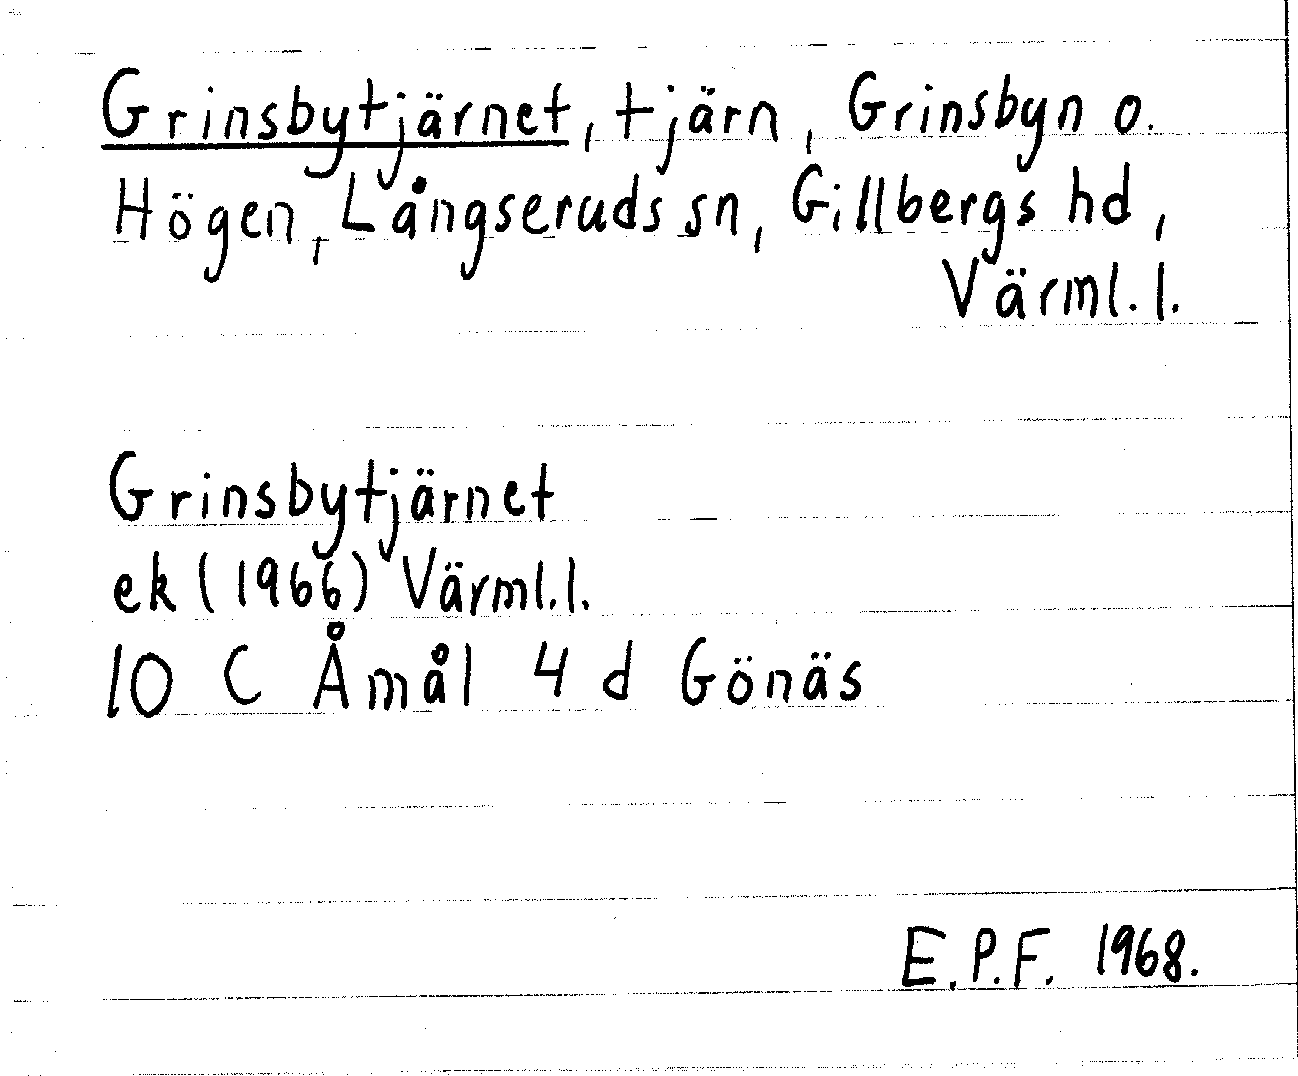 Grinsbytjärnet, tjärn, Grinsbyn o.
Högen, Långseruds sn, Gillbergs hd,
Värml. l.
Grinsbytjärnet
ek (1966) Värml. l.
10 C Åmål 4 d Gönäs
E.P.F. 1968.